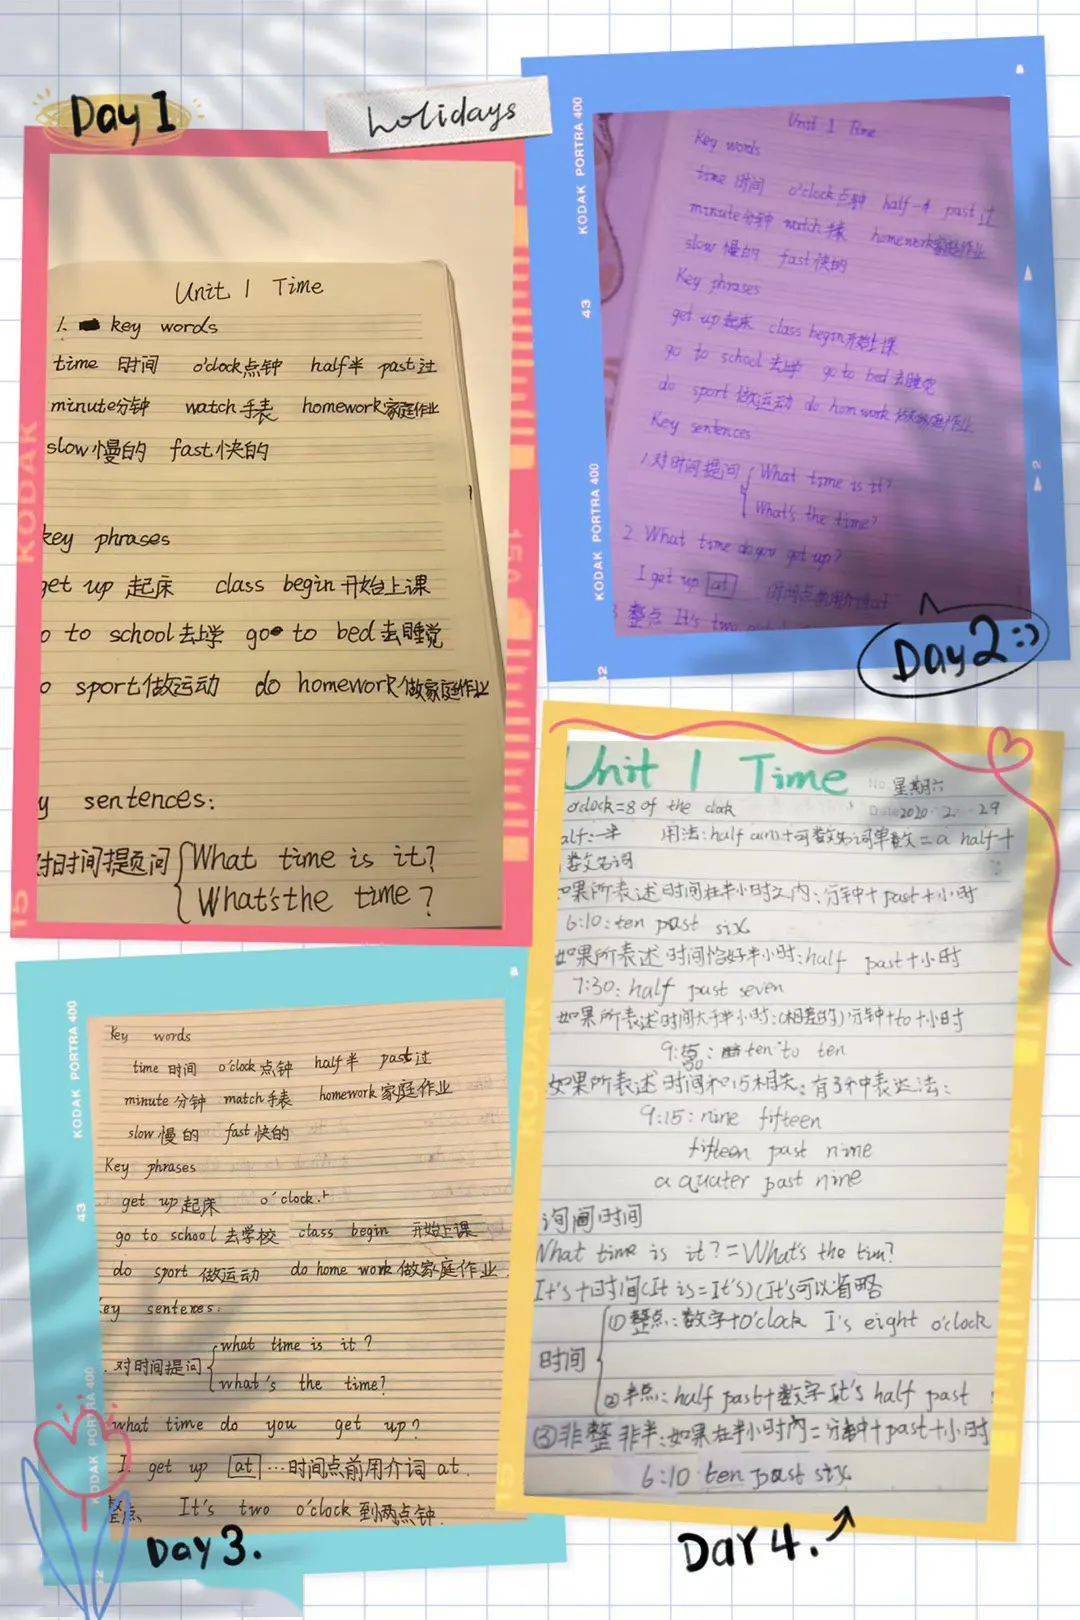 Day 1
holidays
Unit 1 Time
1. key words
time 时间 o'clock点钟 half半 past过
minute分钟 watch手表 homework家庭作业
slow慢的 fast快的
key phrases
get up 起床 class begin 开始上课
o to school去上学 go to bed去睡觉
o sport做运动 do homework做家庭作业
y sentences:
对时间提问 What time is it?
What's the time?
KODAK
KODAK PORTRA 400
43
KODAK PORTRA 400
Unit 1 Time
Key words
time 时间 o'clock点钟 half一半 past 过
minute分钟 watch手表 homework家庭作业
slow 慢的 fast快的
Key phrases
get up起床 class begin开始上课
go to school去上学 go to bed去睡觉
do sport 做运动 do homework 做家庭作业
Key sentences
1.对时间提问 What time is it?
What's the time?
2 What time do you get up?
I get up at 时间点前用介词at
3 整点 It's two
Day2:)
KODAK PORTRA 400
43
KODAK PORTRA 400
key words
time 时间 o'clock点钟 half半 past过
minute分钟 match手表 homework家庭作业
slow慢的 fast快的
Key phrases
get up起床 o'clock
go to school去学校 class begin 开始上课
do sport 做运动 do home work做家庭作业
ey
对时间提问 what time is it?
what's the time?
what time do you get up?
I get up at …时间点前用介词at.
整点 It's two o'clock到两点钟.
Day3.
Unit 1 Time
No. 星期六
Date2020. 2. 29
o'clock=8 of the
alf:一半 用法:half a(n)+可数名词单数=a half+
数名词
如果所表述时间在半小时之内:分钟+past+小时
6:10: ten past six
如果所表述时间恰好半小时:half past+小时
7:30: half past seven
如果所表述时间大于半小时:(相差的)分钟+to+小时
9: ten to ten
如果所表述时间和15相关:有3种表达法:
9:15: nine fifteen
fifteen past nine
a quater past nine
询问时间
What time is it?=What's the tim?
It's+时间(It is=It's)(It's可以省略
时间 ①整点:数字+o'clock I's eight o'clock
②半点: half past+数字It's half past
③非整非半:如果在半小时内=分钟+past+小时
6:10 ten past six
Day 4.